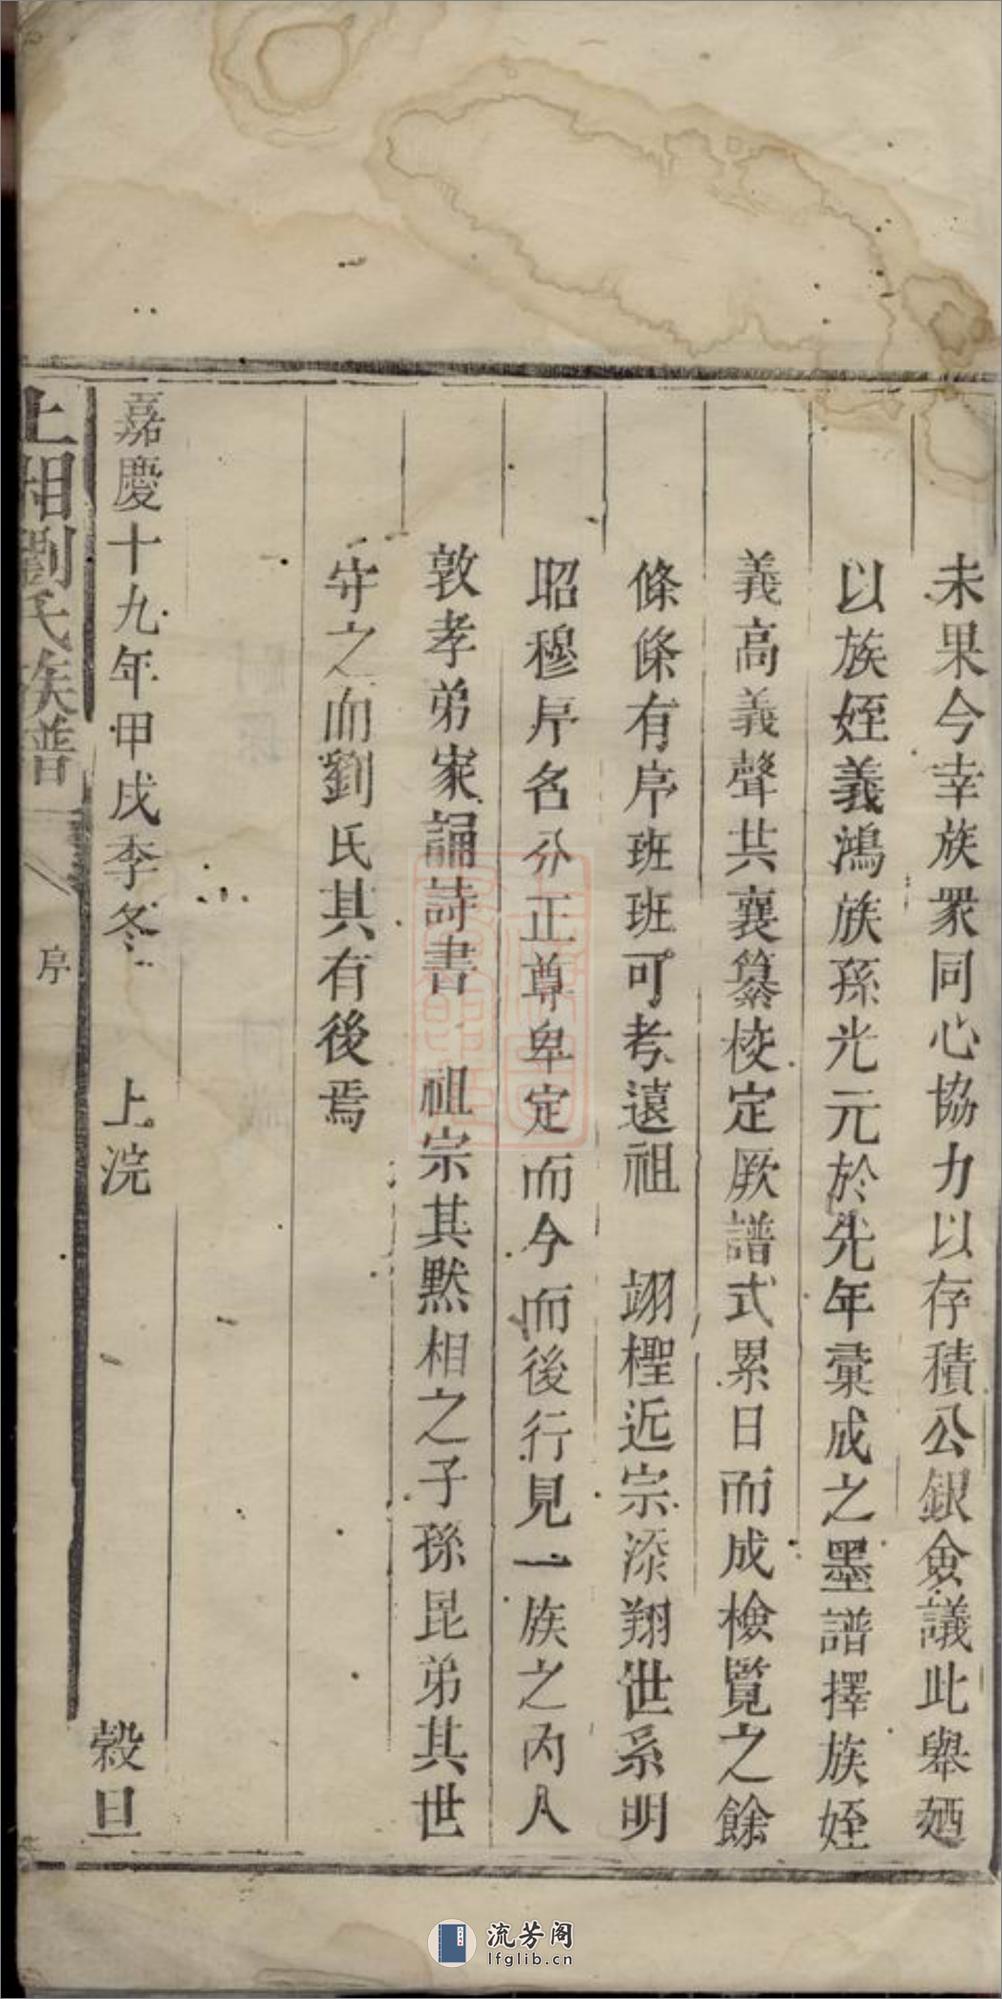 未果今幸族衆同心協力以存積公銀僉議此舉廼
以族姪義鴻族孫光元於先年彙成之墨譜擇族姪
義高義聲共襄纂校定厥譜式累日而成檢覽之餘
條條有序班班可考遠祖　翊檉近宗添翔世系明
昭穆序名分正尊卑定而今而後行見一族之內人
敦孝弟家誦詩書　祖宗其默相之子孫昆弟其世
守之而劉氏其有後焉
嘉慶十九年甲戌季冬　上浣　穀旦
上湘劉氏族譜
序
流芳阁
lfglib.cn